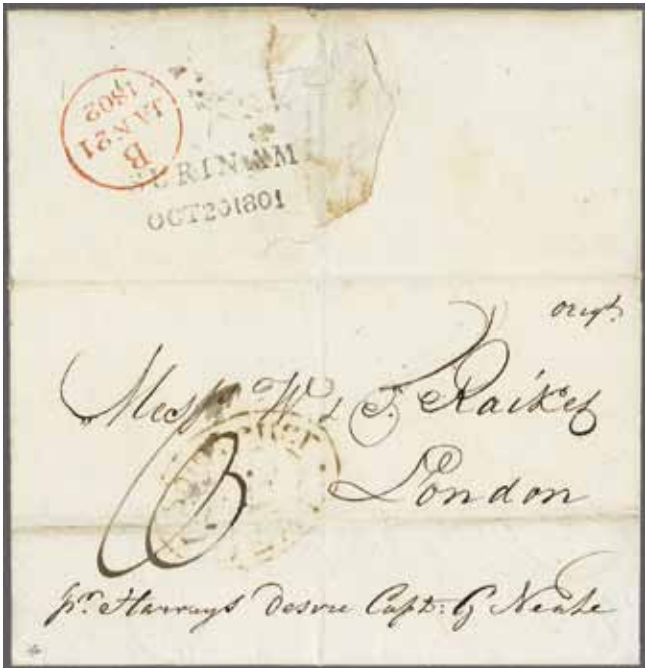 B
JAN21
1802
SURINAM
OCT201801
origl.
Messrs. W & T. Raikes
London
pr. Harrays Desire Capt: G Neale